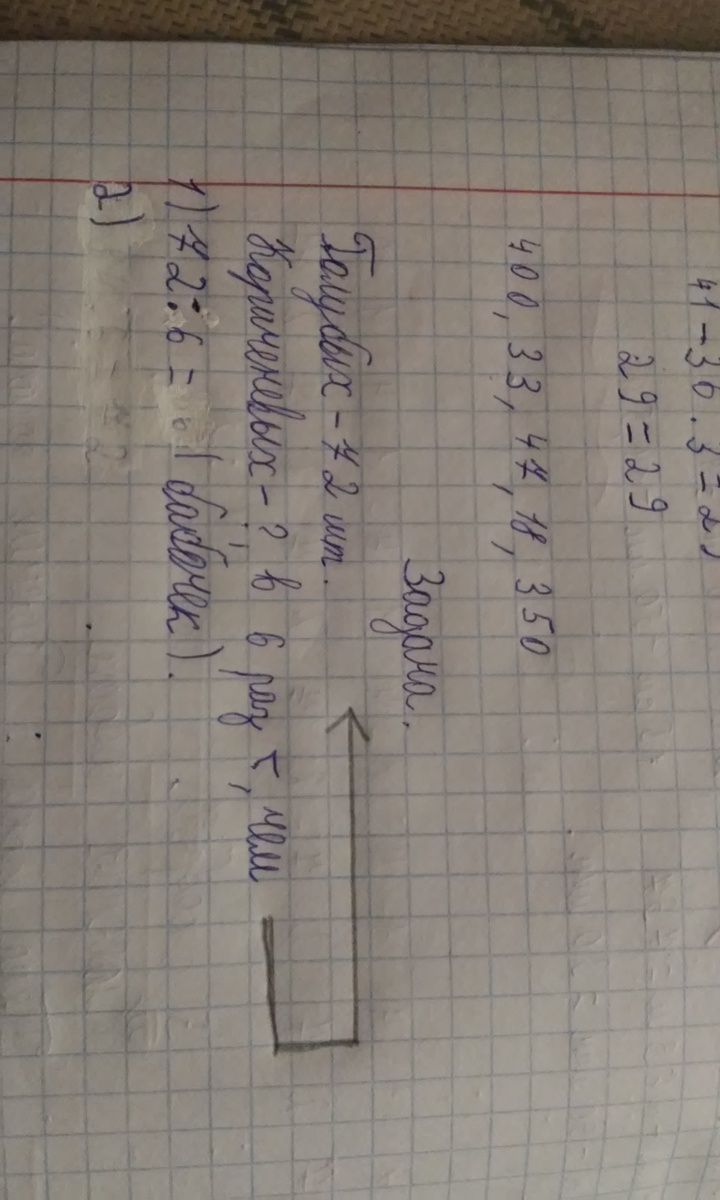 41-36:3=29
29=29
400, 33, 47, 18, 350
Задача.
Голубых - 72 шт.
Коричневых - ? в 6 раз <, чем
1) 72:6= ( бабочек).
2)